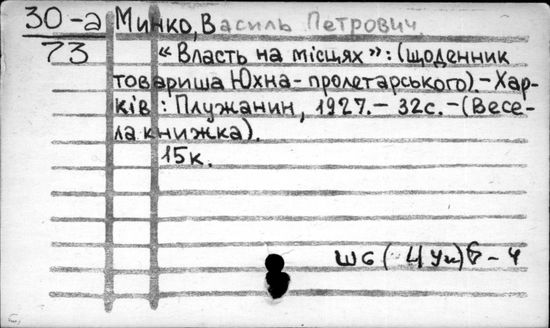 30-а Минко, Василь Петрович
73 «Власть на місцях»: (щоденник
товариша Юхна-пролетарського).-Хар-
ків: Плужанин, 1927.- 32с.-(Весе-
ла книжка).
15к.
Ш6(4Ук)6-4